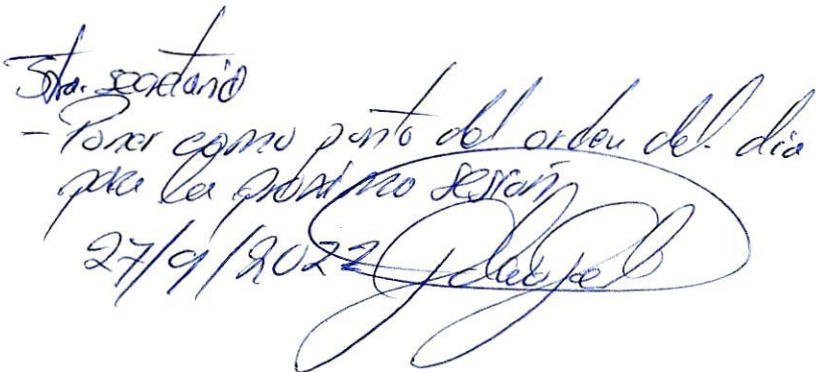 Stra. secretaria
- Poner como punto del orden del dia
para la proximo sesión
27/9/2022